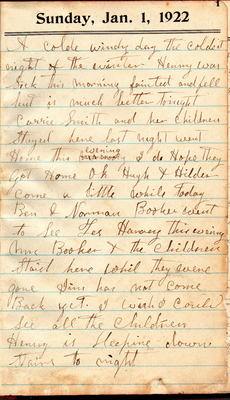 1
Sunday, Jan. 1, 1922
A colde windy day the coldest
night of the winter Henny was
Sick this morning fainted and fell
but is much better tonight
Carrie Smith and her children
Stayed here last night went
Home this evening I do Hope they
Got Home Ok Hugh & Hilda
come a little while today
Ben & Norman Booher went
to See Les Harvey this evening
Mrs Booher & the Children
Staid here whil they were
gone Jim has not come
Back yet. I wish I could
See all the Children
Henny is Sleeping down
Stairs to night